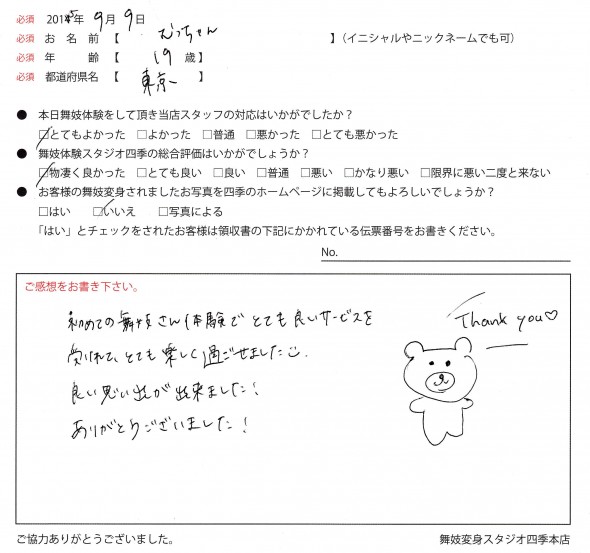 必須 2015年 9月 9日
必須 お名前【 むっちゃん 】（イニシャルやニックネームでも可）
必須 年 齢【 19 歳】
必須 都道府県名【 東京 】
● 本日舞妓体験をして頂き当店スタッフの対応はいかがでしたか？
☑とてもよかった □よかった □普通 □悪かった □とても悪かった
● 舞妓体験スタジオ四季の総合評価はいかがでしょうか？
☑物凄く良かった □とても良い □良い □普通 □悪い □かなり悪い □限界に悪い二度と来ない
● お客様の舞妓変身されましたお写真を四季のホームページに掲載してもよろしいでしょうか？
□はい ☑いいえ □写真による
「はい」とチェックをされたお客様は領収書の下記にかかれている伝票番号をお書きください。
No.
ご感想をお書き下さい。
初めての舞妓さん体験でとても良いサービスを
受けれて、とても楽しく過ごせました☺.
良い思い出が出来ました！
ありがとうございました！
Thank you♡
ご協力ありがとうございました。
舞妓変身スタジオ四季本店